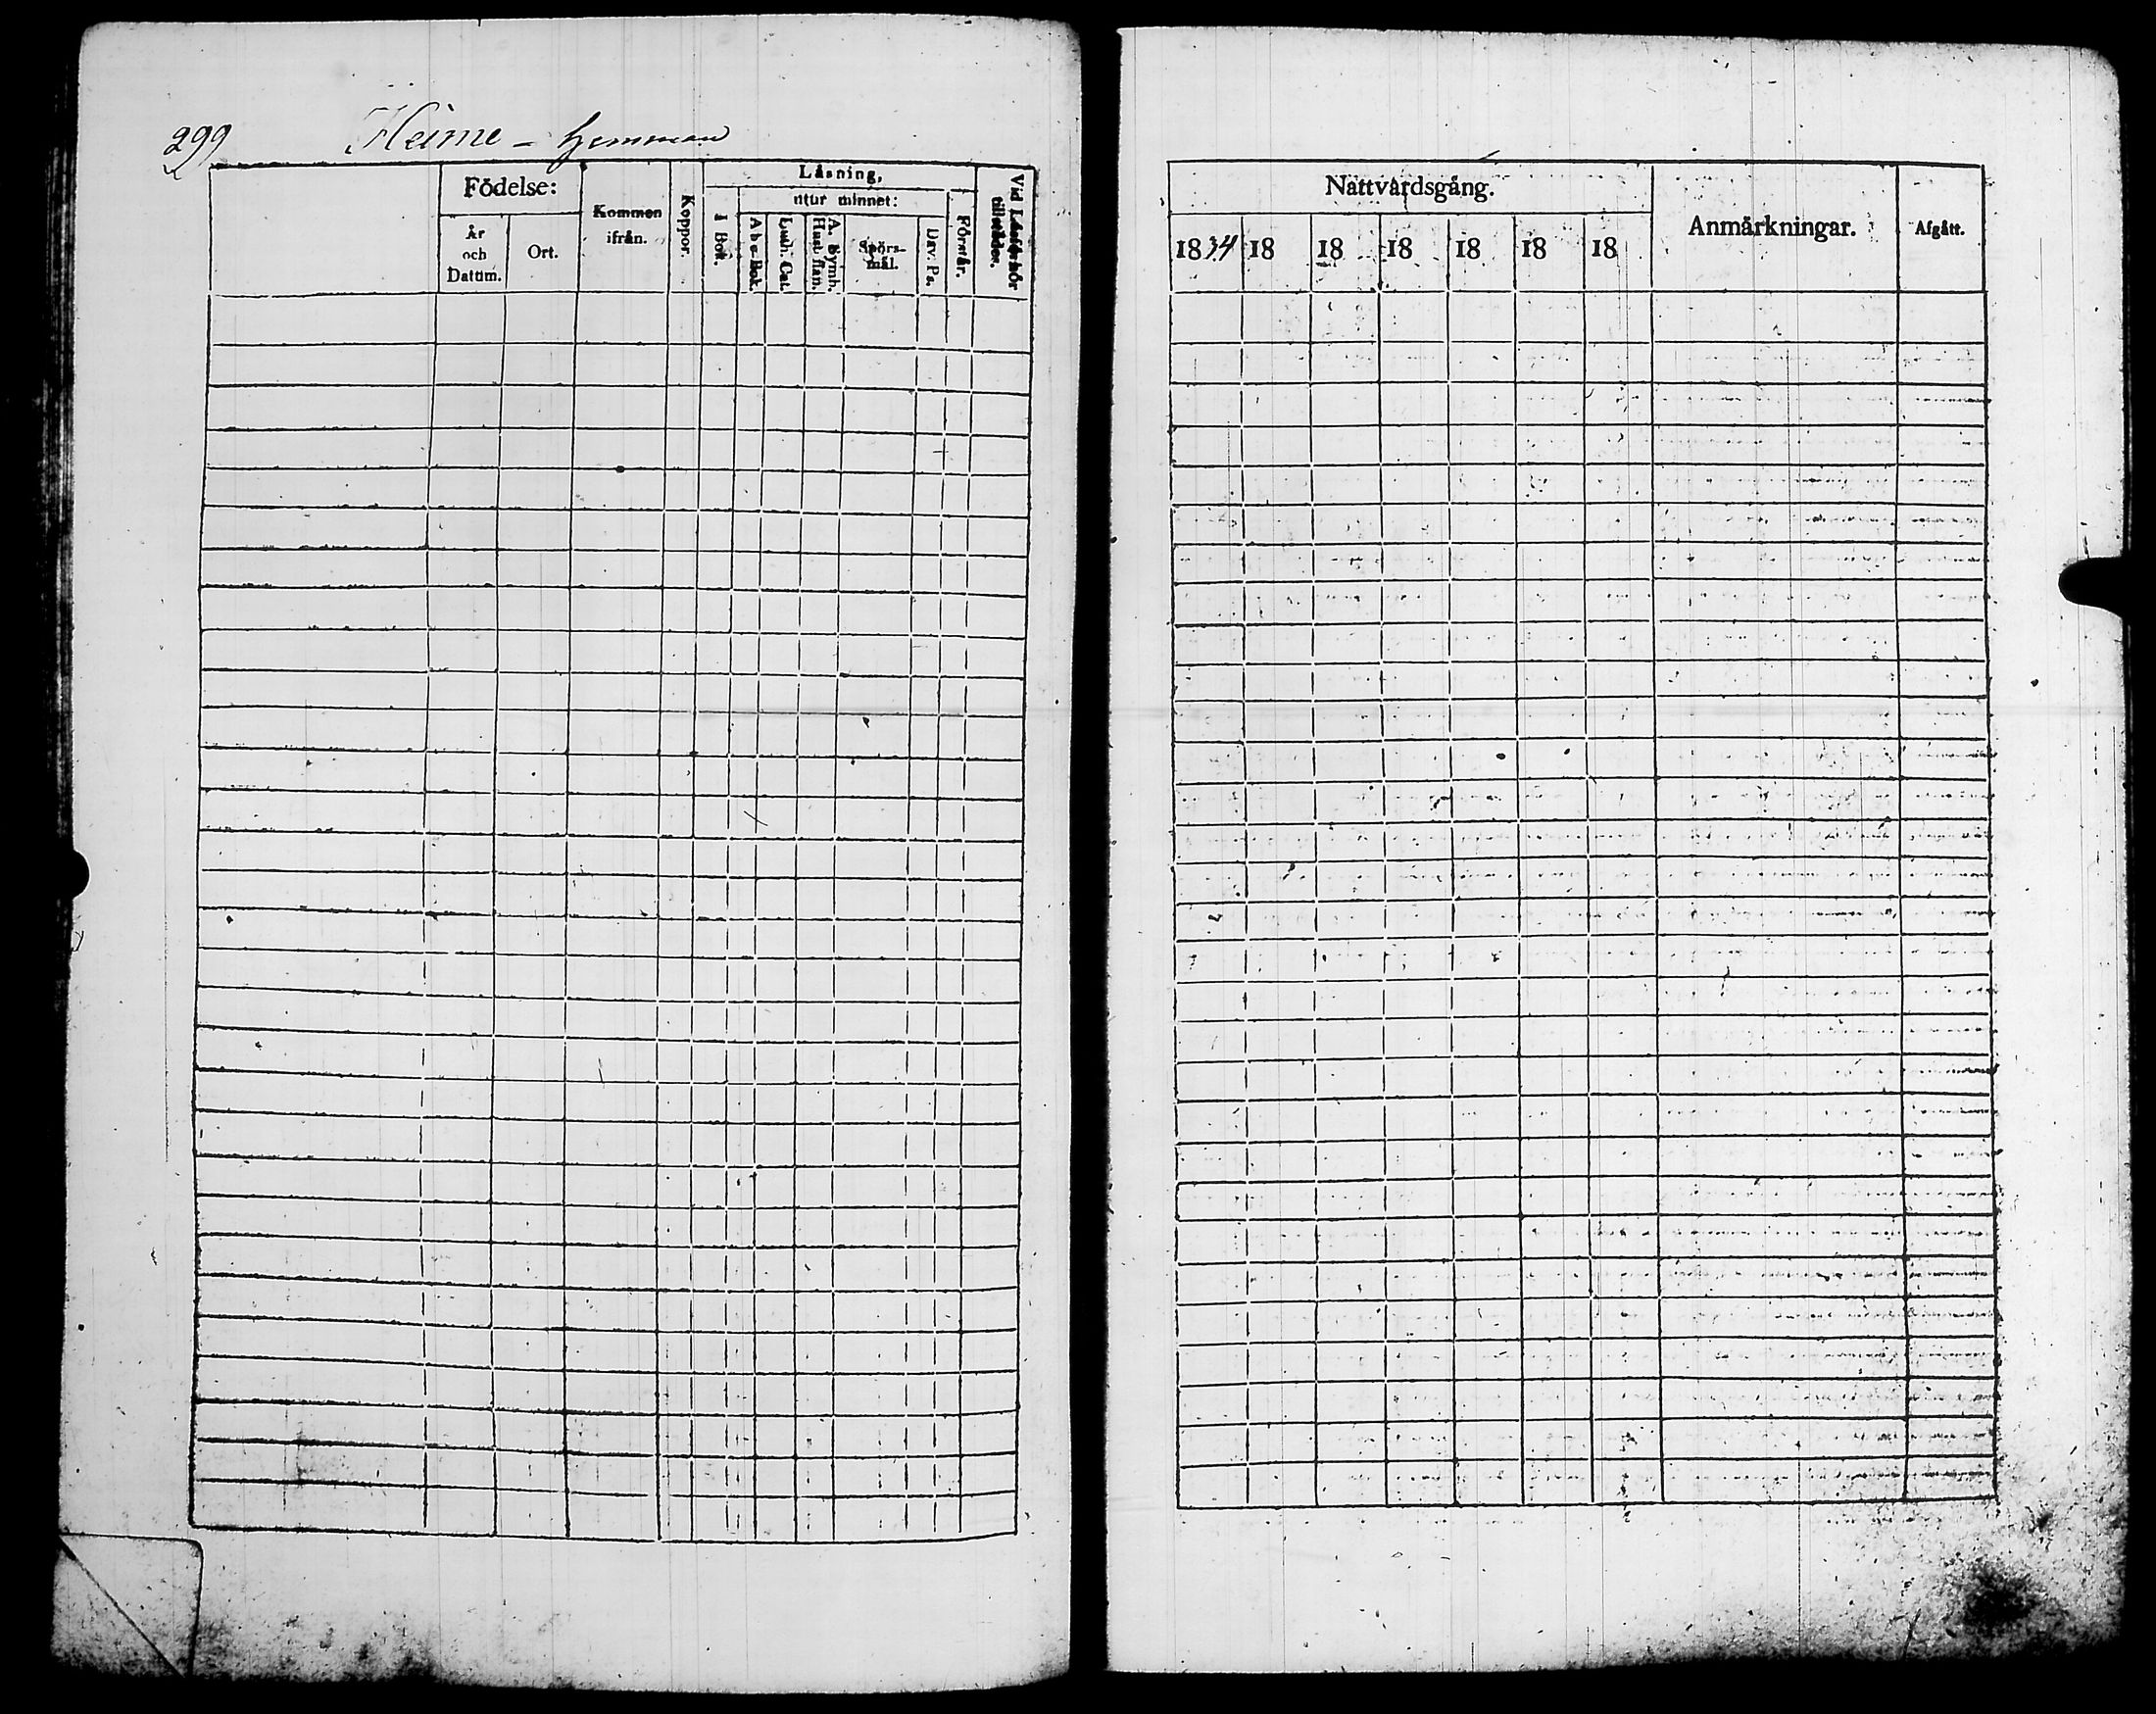 299 Heime - hemman
Födelse:
År
och
Datum.
Ort.
Kommen
ifrån.
Koppor.
Läsning,
utur minnet:
I Bok.
Abc-Bok.
Luth. Cat.
A. Symb.
Hust. flan.
Spörs-
mål.
Dav. Ps.
Förstår.
Vid Läsförhör
tillstädes.
Nattvardsgång.
1834 18 18 18 18 18 18
Anmärkningar.
Afgått.